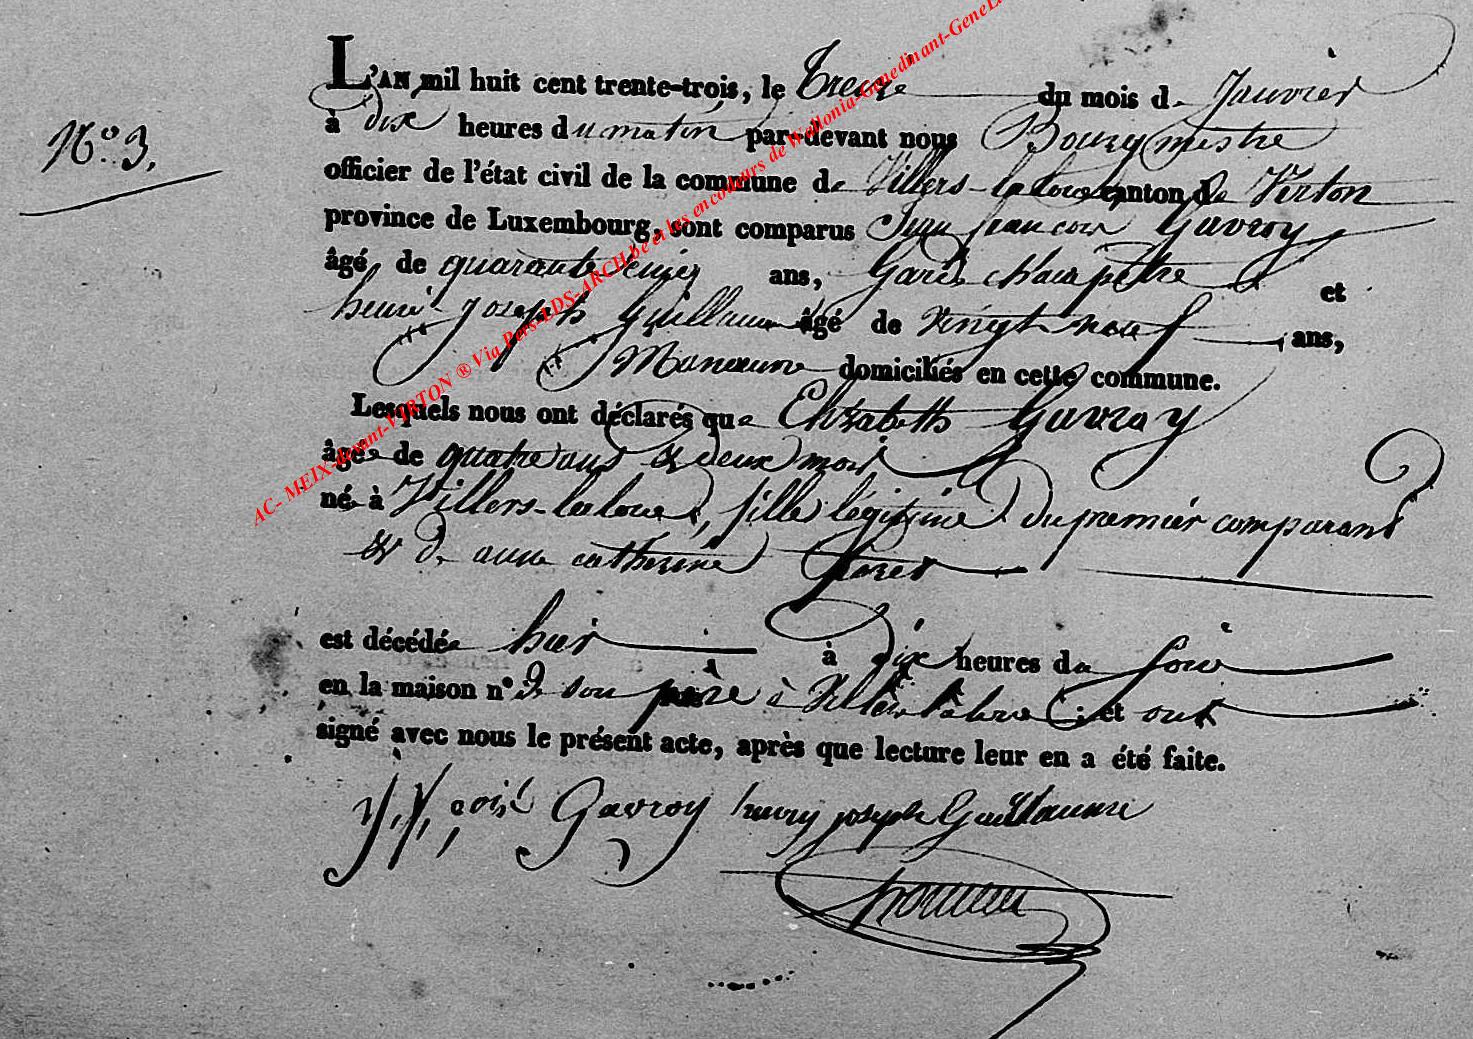 N.º 3.
L'AN mil huit cent trente-trois, le treize du mois de Janvier
à dix heures du matin par-devant nous Bourgmestre
officier de l'état civil de la commune de Villers-la loue canton de Virton
province de Luxembourg, sont comparus Jean françois Gavroy
âgé de quarante cinq ans, Garde champêtre et
henri joseph Guillaume âgé de vingt neuf ans,
Manœuvre domiciliés en cette commune.
Lesquels nous ont déclarés que Elisabeth Gavroy
âgée de quatre ans & deux mois
née à Villers-la loue, fille légitime du premier comparant
& de anne catherine
est décédée hier à dix heures du soir
en la maison nº de son père à Villers la loue ; et ont
signé avec nous le présent acte, après que lecture leur en a été faite.
Gavroy henry joseph Guillaume
AC- MEIX-devant-VIRTON ® Via Pers-LDS-ARCH be et les encodeurs de Wallonia-Genedinant-GeneL